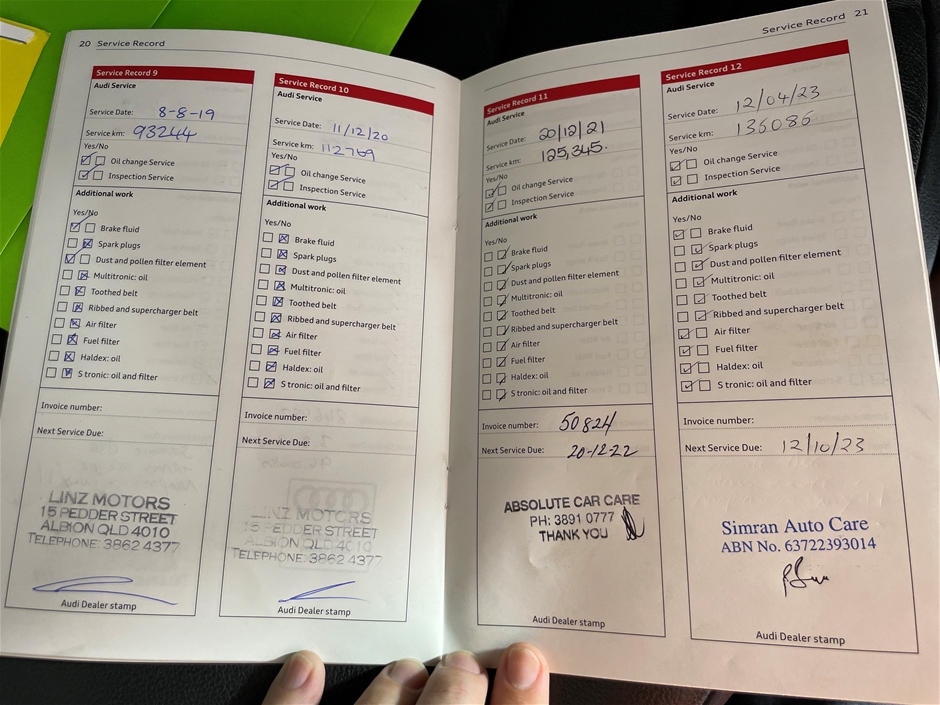 20 Service Record
Service Record 9
Audi Service
Service Date: 8-8-19
Service km: 93244
Yes/No
Oil change Service
Inspection Service
Additional work
Yes/No
Brake fluid
Spark plugs
Dust and pollen filter element
Multitronic: oil
Toothed belt
Ribbed and supercharger belt
Air filter
Fuel filter
Haldex: oil
S tronic: oil and filter
Invoice number:
Next Service Due:
LINZ MOTORS
15 PEDDER STREET
ALBION QLD 4010
TELEPHONE: 3862 4377
Audi Dealer stamp
Service Record 10
Audi Service
Service Date: 11/12/20
Service km: 112769
Yes/No
Oil change Service
Inspection Service
Additional work
Yes/No
Brake fluid
Spark plugs
Dust and pollen filter element
Multitronic: oil
Toothed belt
Ribbed and supercharger belt
Air filter
Fuel filter
Haldex: oil
S tronic: oil and filter
Invoice number:
Next Service Due:
LINZ MOTORS
15 PEDDER STREET
ALBION QLD 4010
TELEPHONE: 3862 4377
Audi Dealer stamp
Service Record 21
Service Record 11
Audi Service
Service Date: 20/12/21
Service km: 125,345.
Yes/No
Oil change Service
Inspection Service
Additional work
Yes/No
Brake fluid
Spark plugs
Dust and pollen filter element
Multitronic: oil
Toothed belt
Ribbed and supercharger belt
Air filter
Fuel filter
Haldex: oil
S tronic: oil and filter
Invoice number: 50824
Next Service Due: 20-12-22
ABSOLUTE CAR CARE
PH: 3891 0777
THANK YOU
Audi Dealer stamp
Service Record 12
Audi Service
Service Date: 12/04/23
Service km: 136086
Yes/No
Oil change Service
Inspection Service
Additional work
Yes/No
Brake fluid
Spark plugs
Dust and pollen filter element
Multitronic: oil
Toothed belt
Ribbed and supercharger belt
Air filter
Fuel filter
Haldex: oil
S tronic: oil and filter
Invoice number:
Next Service Due: 12/10/23
Simran Auto Care
ABN No. 63722393014
Audi Dealer stamp